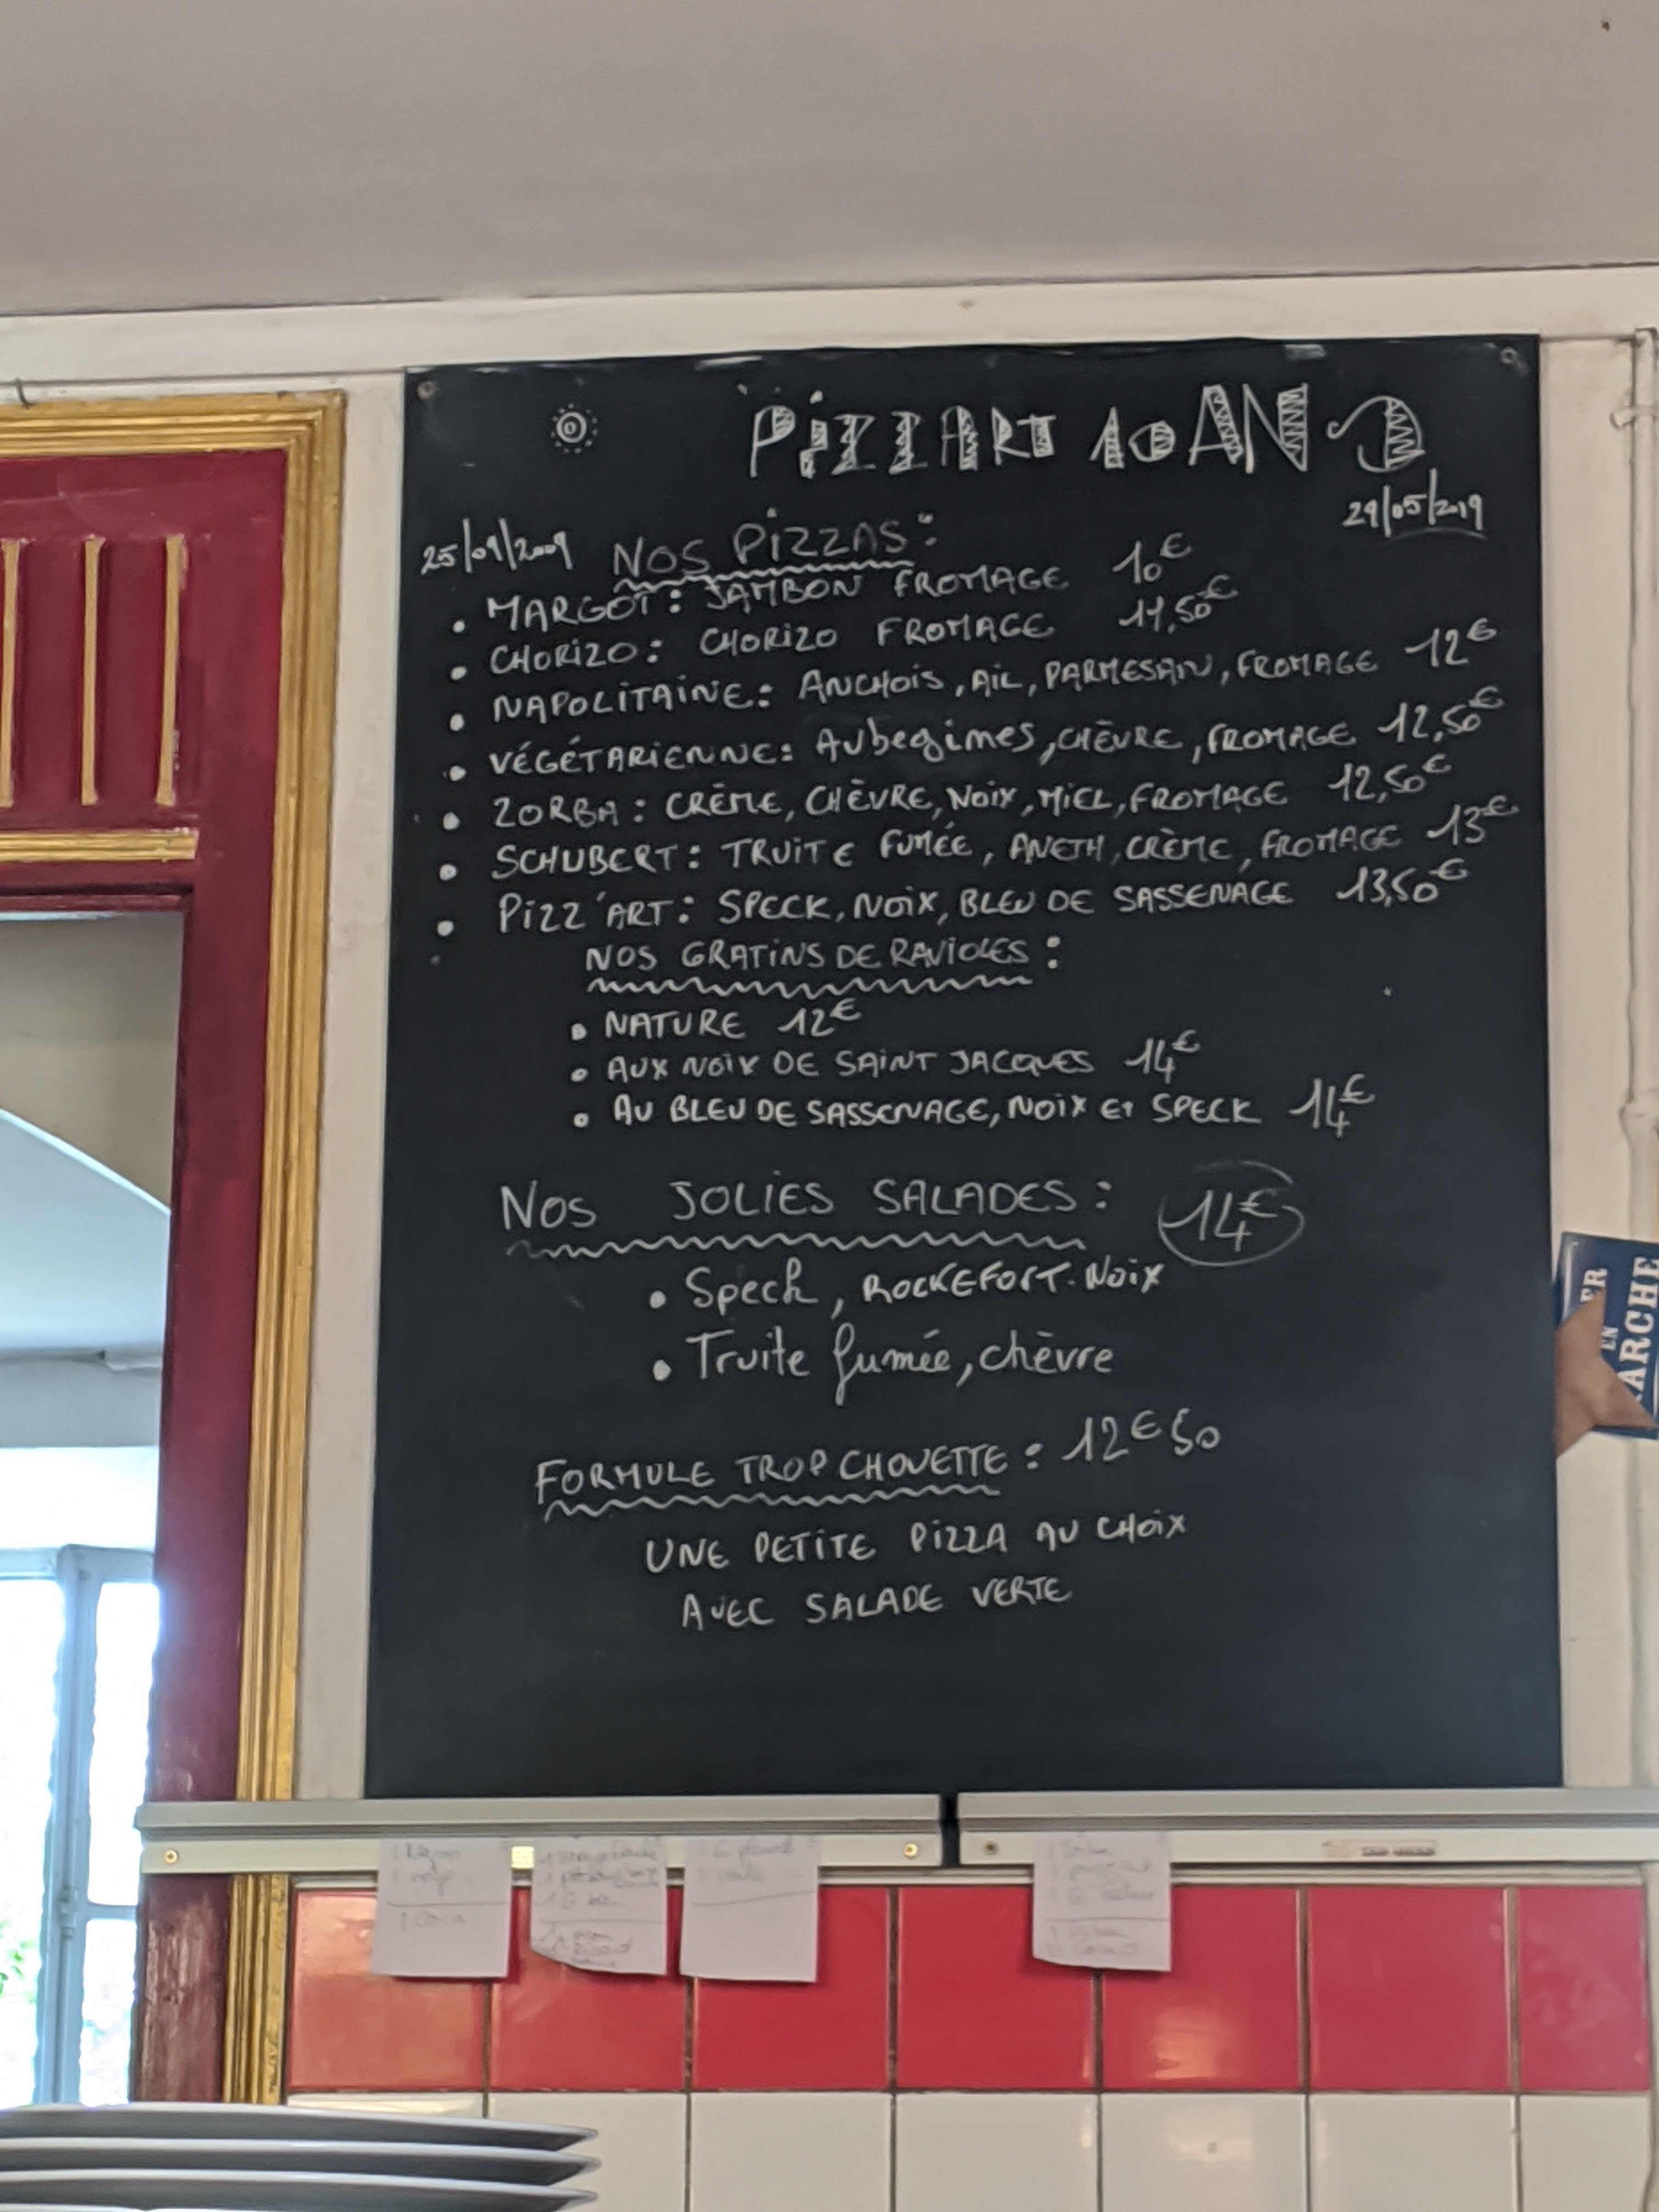 PIZZART 10 ANS
29/05/2019
25/09/2009 NOS PIZZAS :
• MARGOT : JAMBON FROMAGE 10€
• CHORIZO : CHORIZO FROMAGE 11,50€
• NAPOLITAINE : ANCHOIS, AIL, PARMESAN, FROMAGE 12€
• VÉGÉTARIENNE : AUbegimes, CHÈVRE, FROMAGE 12,50€
• ZORBA : CRÈME, CHÈVRE, NOIX, MIEL, FROMAGE 12,50€
• SCHUBERT : TRUITE FUMÉE, ANETH, CRÈME, FROMAGE 13€
• PIZZ'ART : SPECK, NOIX, BLEU DE SASSENAGE 13,50€
NOS GRATINS DE RAVIOLES :
• NATURE 12€
• AUX NOIX DE SAINT JACQUES 14€
• AU BLEU DE SASSENAGE, NOIX ET SPECK 14€
NOS JOLIES SALADES : 14€
• Speck, ROCKEFORT. NOIX
• Truite fumée, chèvre
FORMULE TROP CHOUETTE : 12€50
UNE PETITE PIZZA AU CHOIX
AVEC SALADE VERTE
EN